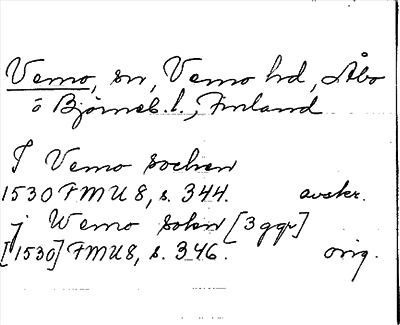 Vemo, sn, Vemo hd, Åbo
o Björneb. l., Finland
I Vemo sochen
1530 FMU 8, s. 344. avskr.
j Wemo sokn [3 ggr]
[1530] FMU 8, s. 346. orig.